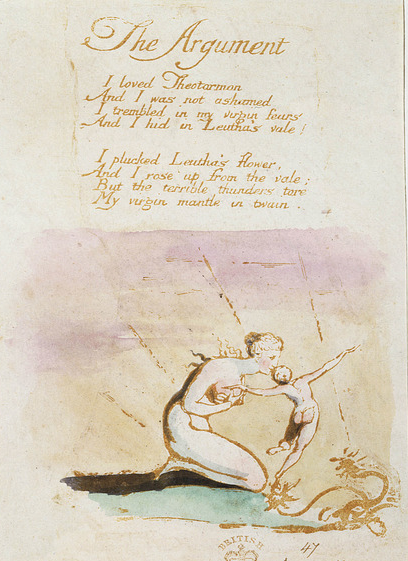 The Argument
I loved Theotormon
And I was not ashamed
I trembled in my virgin fears
And I hid in Leutha's vale!
I plucked Leutha's flower,
And I rose up from the vale;
But the terrible thunders tore
My virgin mantle in twain.
BRITISH
47